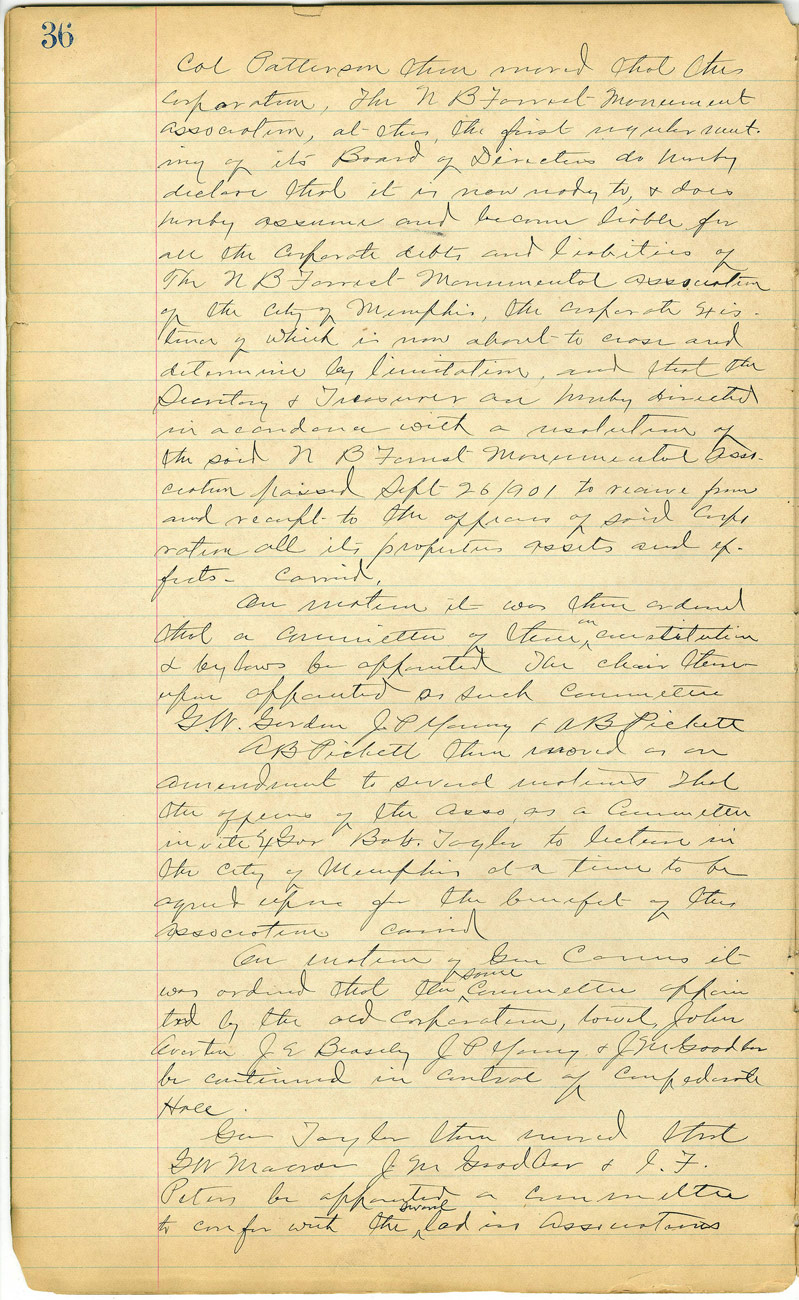 36
Col Patterson then moved that this
corporation, The N B Forrest Monument
Association, at this, the first regular meet-
ing of its Board of Directors do hereby
declare that it is now ready to, & does
hereby assume and become liable for
all the corporate debts and liabilities of
The N B Forrest Monumental Association
of the City of Memphis, the corporate exis-
tence of which is now about to cease and
determine by limitation, and that the
Secretary & Treasurer are hereby directed
in accordance with a resolution of
the said N B Forrest Monumental Asso-
ciation passed Sept 26/901 to receive from
and receipt to the officers of said Corpo
ration all its properties assets and ef-
fects - carried.
On motion it was then ordered
that a committee of three on constitution
& by laws be appointed The chair there-
upon appointed as such Committee
G.W. Gordon J.P Young & A B Pickett
A B Pickett then moved as an
amendment to several motions that
the officers of the Asso, as a Committee
invite Gov Bob. Taylor to lecture in
the City of Memphis at a time to be
agreed upon for the benefit of this
Association carried
On motion of Gen Carnes it
was ordered that the same Committee appoin
ted by the old Corporation, towit, John
Overton J E Beasley J P Young & J M Goodbar
be continued in control of Confederate
Hall.
Gen Taylor then moved that
G W Macrae J M Goodbar & I. F.
Peters be appointed a committee
to confer with the several ladies Associations